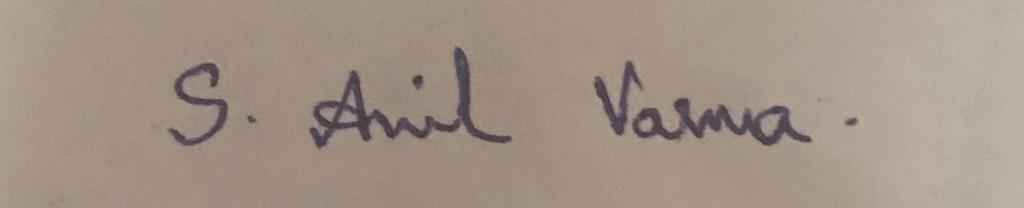 S. Anil Varma.